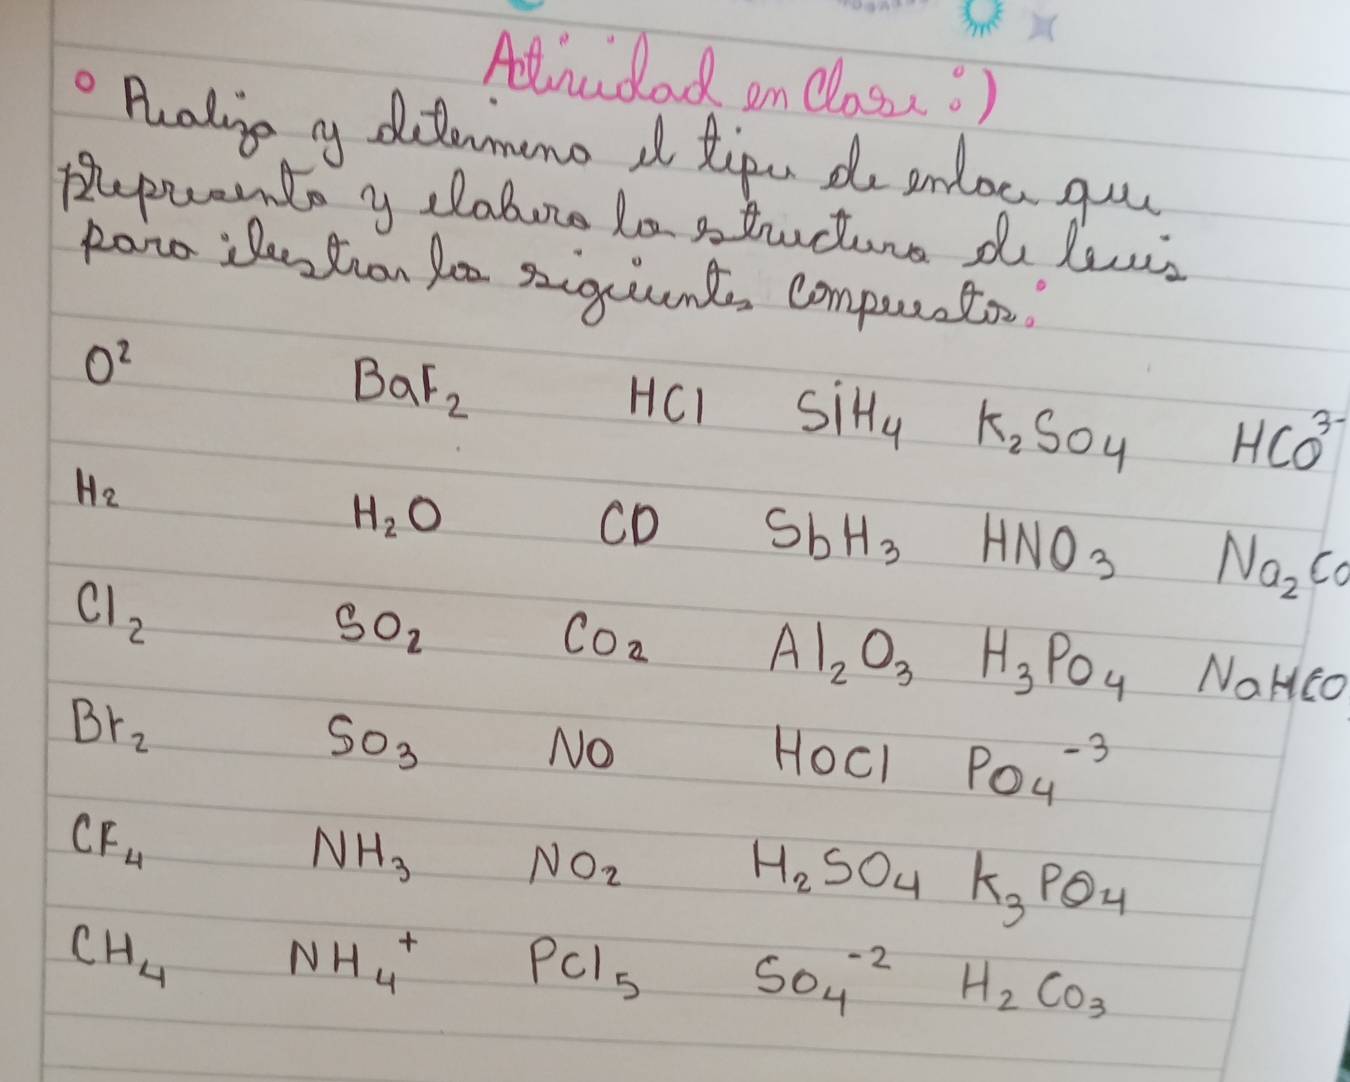 Actividad en Clase :)
° Realizo y determino el tipo de enlace que
representa y elaboro la estructura de lewis
para ilustrar los siguientes compuestos:
O² BaF₂ HCl SiH₄ K₂SO₄ HCO³⁻
H₂ H₂O CO SbH₃ HNO₃ Na₂CO
Cl₂ SO₂ CO₂ Al₂O₃ H₃PO₄ NaHCO
Br₂ SO₃ NO HOCl PO₄⁻³
CF₄ NH₃ NO₂ H₂SO₄ K₃PO₄
CH₄ NH₄⁺ PCl₅ SO₄⁻² H₂CO₃